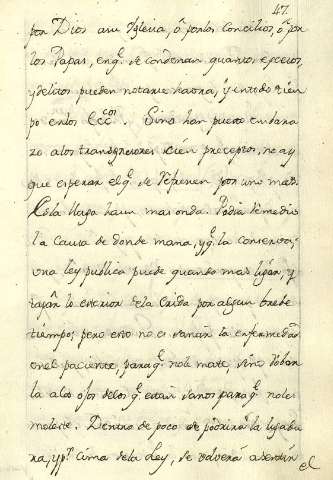 47.
por Dios asu Yglesia, ô por los Concilios, ô por
los Papas, enq.e se condenan quantos excesos,
y delitos pueden notarse haora, y en todo tiem
po en los Ecc.cos. Sino han puesto embara
zo alos transgresores cien preceptos, no ay
que esperar el q.e se refrenen por uno mas.
Esta llaga ha un mas onda. Pedia remedio
la Causa de donde mana, y q.e la conserva;
una ley publica puede quando mas ligar, y
tapar lo exterior dela herida por algun brebe
tiempo; pero esto no es sanar la enfermedad
en el paciente paraq.e nole mate, sino roban
la alos ojos delos q.e estan sanos paraq.e noles
moleste. Dentro de poco se podrirà la ligadu
ra, y p.r cima dela Ley, se volverá a sentir
el